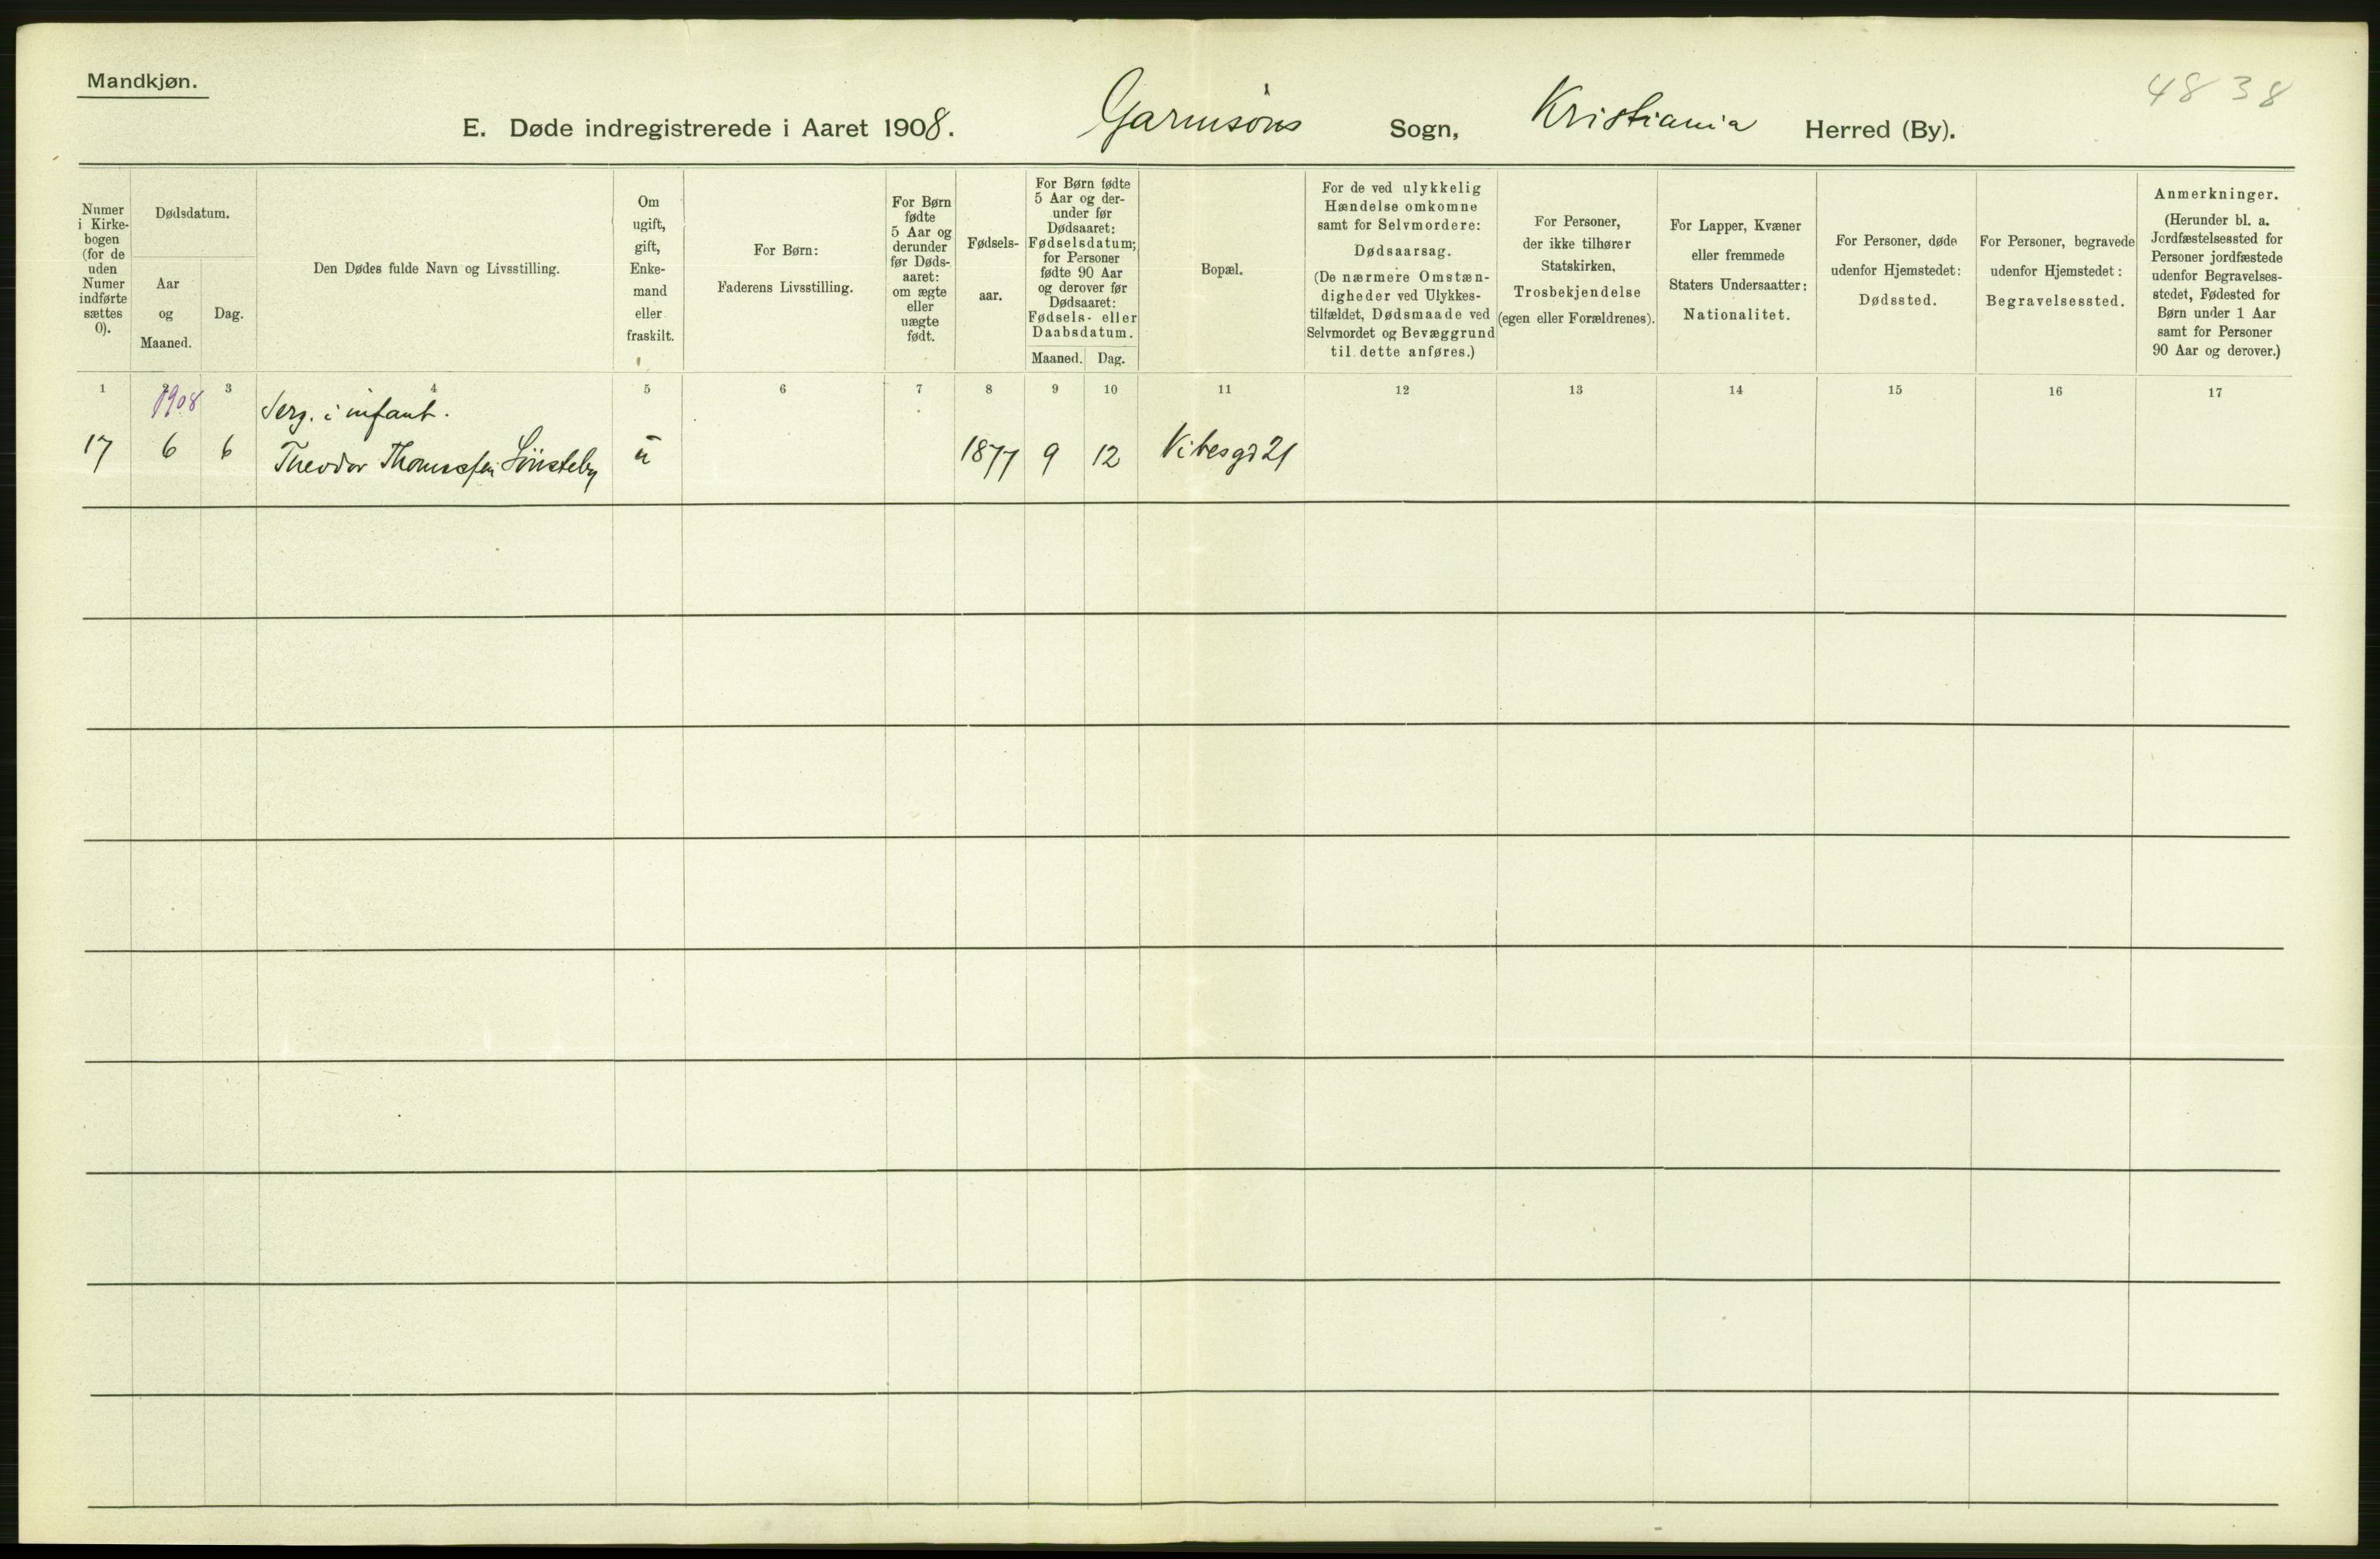 Mandkjøn.
4838
E. Døde indregistrerede i Aaret 1908. Garnisons Sogn, Kristiania Herred (By).
Numer
i Kirke-
bogen
(for de
uden
Numer
indførte
sættes
0).
Dødsdatum.
Aar
og
Maaned.
Dag.
Den Dødes fulde Navn og Livsstilling.
Om
ugift,
gift,
Enke-
mand
eller
fraskilt.
For Børn:
Faderens Livsstilling.
For Børn
fødte
5 Aar og
derunder
før Døds-
aaret:
om ægte
eller
uægte
født.
Fødsels-
aar.
For Børn fødte
5 Aar og der-
under før
Dødsaaret:
Fødselsdatum;
for Personer
fødte 90 Aar
og derover før
Dødsaaret:
Fødsels- eller
Daabsdatum.
Maaned. Dag.
Bopæl.
For de ved ulykkelig
Hændelse omkomne
samt for Selvmordere:
Dødsaarsag.
(De nærmere Omstæn-
digheder ved Ulykkes-
tilfældet, Dødsmaade ved
Selvmordet og Bevæggrund
til dette anføres.)
For Personer,
der ikke tilhører
Statskirken,
Trosbekjendelse
(egen eller Forældrenes).
For Lapper, Kvæner
eller fremmede
Staters Undersaatter:
Nationalitet.
For Personer, døde
udenfor Hjemstedet:
Dødssted.
For Personer, begravede
udenfor Hjemstedet:
Begravelsessted.
Anmerkninger.
(Herunder bl. a.
Jordfæstelsessted for
Personer jordfæstede
udenfor Begravelses-
stedet, Fødested for
Børn under 1 Aar
samt for Personer
90 Aar og derover.)
1 2 3 4 5 6 7 8 9 10 11 12 13 14 15 16 17
1908 Serg. i infant.
17 6 6 Theodor Thomassen Lönsteby u 1877 9 12 Vibesgd 21